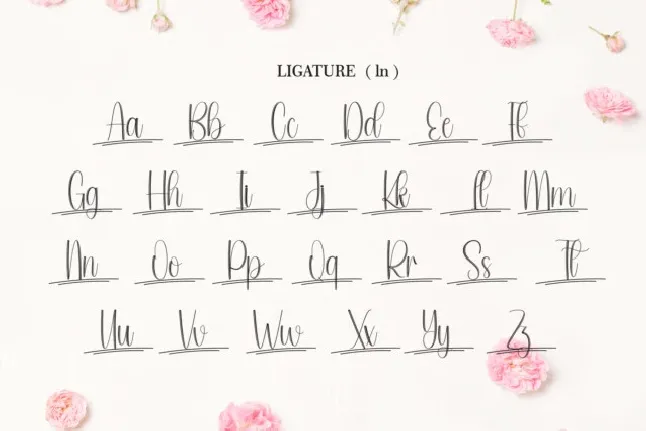 LIGATURE ( ln )
Aa Bb Cc Dd Ee Ff
Gg Hh Ii Jj Kk Ll Mm
Nn Oo Pp Qq Rr Ss Tt
Uu Vv Ww Xx Yy Zz